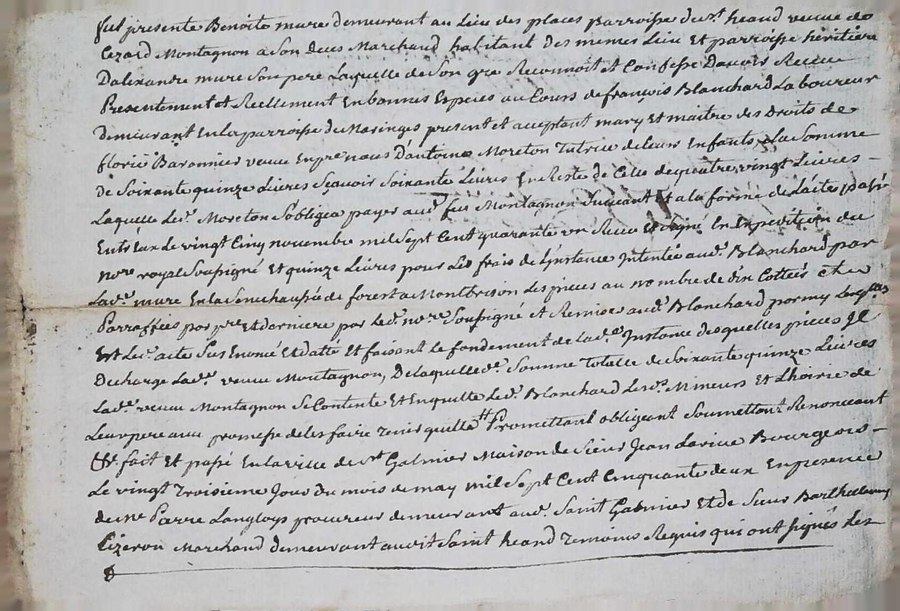 fut presente Benoite mure demeurant au Lieu des places parroisse de st. heand veuve de
Cezard Montagnon a Son deces Marchand habitant des memes Lieu Et parroisse heritiere
Dalexandre mure Son pere Laquelle de Son gre Reconnoit et Confesse Davoir Receu
Presentement et Reellement En bonnes Especes au Cours de françois Blanchard Laboureur
Demeurant En la parroisse de Maringes present et acceptant mary et maitre des Droits de
florie Baronnier veuve En pre. nous D'antoine Moreton Tutrice de leurs Enfants La Somme
De Soixante quinze Livres Scavoir Soixante Livres En Reste de Celle de quatre vingt Livres
Laquelle Led. Moreton S'obligea payer aud. feu Montagnon Suivant Et a la forme de L'acte passé
Entr'Eux Le vingt Cinq novembre mil Sept Cent quarante un Receu Et Signé En Expedition du
nore. royal Soussigné Et quinze Livres pour Les frais de L'instance Intentée aud. Blanchard par
Lad. mure En la Senechaussée de forest a Montbrison Les pieces au nombre de dix Cottées et
Parraffées par pre. Et derniere par Led. nore. Soussigné et Remise aud. Blanchard parmy Lesqles.
Est Led. acte Sus Enoncé Et datté Et faisant le fondement de Lad. Instance desquelles pieces Il
Decharge Lad. veuve Montagnon, De laquelle de. Somme Totalle de Soixante quinze Livres
Lad. veuve Montagnon Se Contente Et En quitte Led. Blanchard Lesd. Mineurs Et L'hoirie de
Leur pere avec promesse de les faire Tenir quitte Promettant obligeant Soumettant Renonceant
fait Et passé En la ville de St. Galmier Maison de Sieur Jean Bourgeois
Le vingt Troisieme Jour du mois de may mil Sept Cent Cinquante deux En presence
de Me Pierre Langloys procureur demeurant aud. Saint Galmier Et de Sieur Barthelemy
Lizeron Marchand demeurant audit Saint heand Temoins Requis qui ont Signés Les